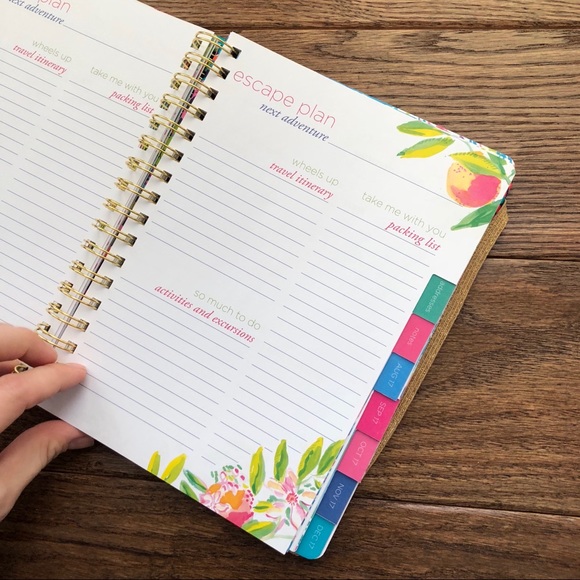 plan
next adventure
wheels up
travel itinerary
take me with you
packing list
escape plan
next adventure
wheels up
travel itinerary
take me with you
packing list
so much to do
activities and excursions
addresses
notes
AUG 17
SEP 17
OCT 17
NOV 17
DEC 17